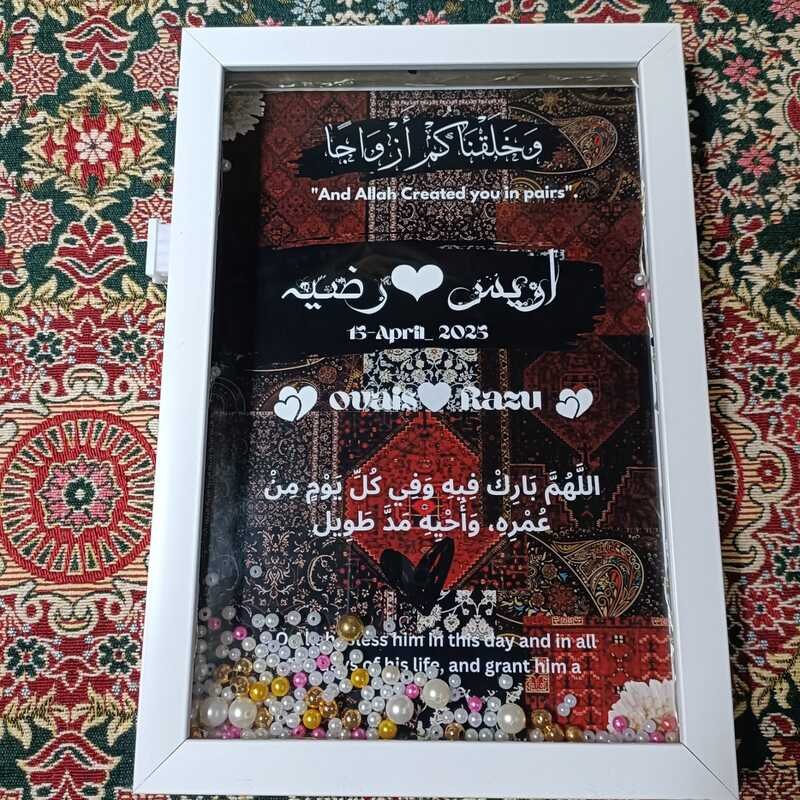 وَخَلَقْنَاكُمْ أَزْوَاجًا
"And Allah Created you in pairs".
اویس رضیہ
15-April_ 2025
ovais Razu
اللَّهُمَّ بَارِكْ فِيهِ وَفِي كُلِّ يَوْمٍ مِنْ
عُمْرِهِ. وَأَحْيِهِ مَدَّ طَوِيل
him in this day and in all
of his life, and grant him a